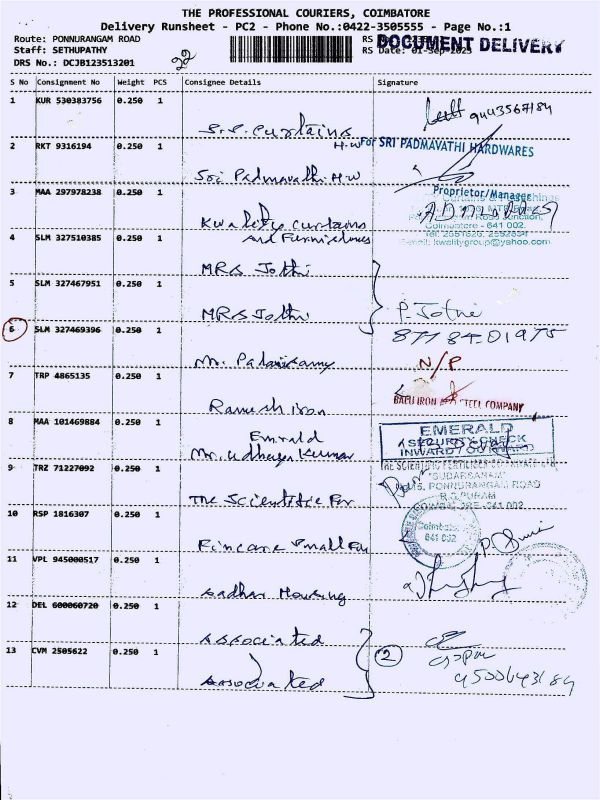 THE PROFESSIONAL COURIERS, COIMBATORE
Delivery Runsheet - PC2 - Phone No.:0422-3505555 - Page No.:1
Route: PONNURANGAM ROAD
RS
DOCUMENT DELIVERY
Staff: SETHUPATHY
RS Date: 01-Sep-2023
DRS No.: DCJB123513201
22
S No Consignment No Weight PCS Consignee Details Signature
1 KUR 530383756 0.250 1
S.S. Curtains
9443567184
2 RKT 9316194 0.250 1
H.W
For SRI PADMAVATHI HARDWARES
Sri Padmavathi H.W
Proprietor/Manager
3 MAA 297978238 0.250 1
Kwality Curtains
and Furnishings
Coimbatore - 641 002.
E-mail: kwalitygroup@yahoo.com
4 SLM 327510385 0.250 1
MRS Jothi
5 SLM 327467951 0.250 1
MRS Jothi
P. Jothi
8778401975
6 SLM 327469396 0.250 1
Mr. Palanisamy
N/P
7 TRP 4865135 0.250 1
Ramesh iron
BAFU IRON STEEL COMPANY
8 MAA 101469884 0.250 1
Emrald
Mr. Udhaya Kumar
EMERALD
SECURITY CHECK
INWARD/OUTWARD
9 TRZ 71227092 0.250 1
The Scientific For
"SUDARSANAM"
15, PONNURANGAM ROAD
R.S.PURAM
COIMBATORE-641 002
10 RSP 1816307 0.250 1
Fincare Small Fin
Coimbatore
641 002
11 VPL 945000517 0.250 1
Aadhar Housing
12 DEL 600060720 0.250 1
Associated
13 CVM 2505622 0.250 1
Associated
2
Gopal
9500643184